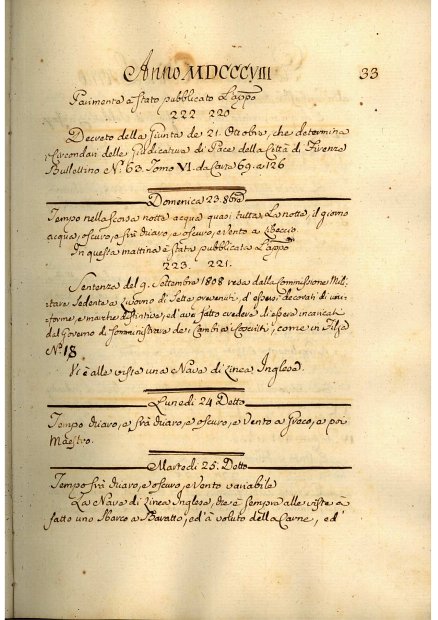 Anno MDCCCVIII 33
Parimente è stato pubblicato L'app.o
222 220
Decreto della Giunta de 21. Ottobre, che determina
i Circondari delle Giudicative di Pace della Città di Firenze
Bullettino N.o 63. Tomo VI. da Carta 69. a 126
Domenica 23. 8bre
Tempo nella scorsa notte acqua quasi tutta La notte, il giorno
acqua, oscuro, e frà chiaro, e oscuro, e Vento a Libeccio.
In questa mattina è stata pubblicata L'app.o
223. 221.
Sentenza del 9. Settembre 1808 resa dalla Commissione Mil-
itare Sedente a Livorno di Sette prevenuti, d'essersi decorati di uni-
forme, e marche distintive, ed' ave fatto credere di essere incaricati
dal Governo di Somministrare de Cambi ai Coscritti, come in Filza
N.o 18
Vi è alle viste una Nava di Linea Inglese.
Lunedi 24 Detto
Tempo chiaro, e frà chiaro, e oscuro, e Vento a Greco, e poi
Maestro.
Martedi 25. Detto
Tempo frà chiaro, e oscuro, e Vento variabile
La Nava di Linea Inglese, che è sempre alle viste à
fatto uno Sbarco a Baratto, ed' à voluto della Carne, ed'